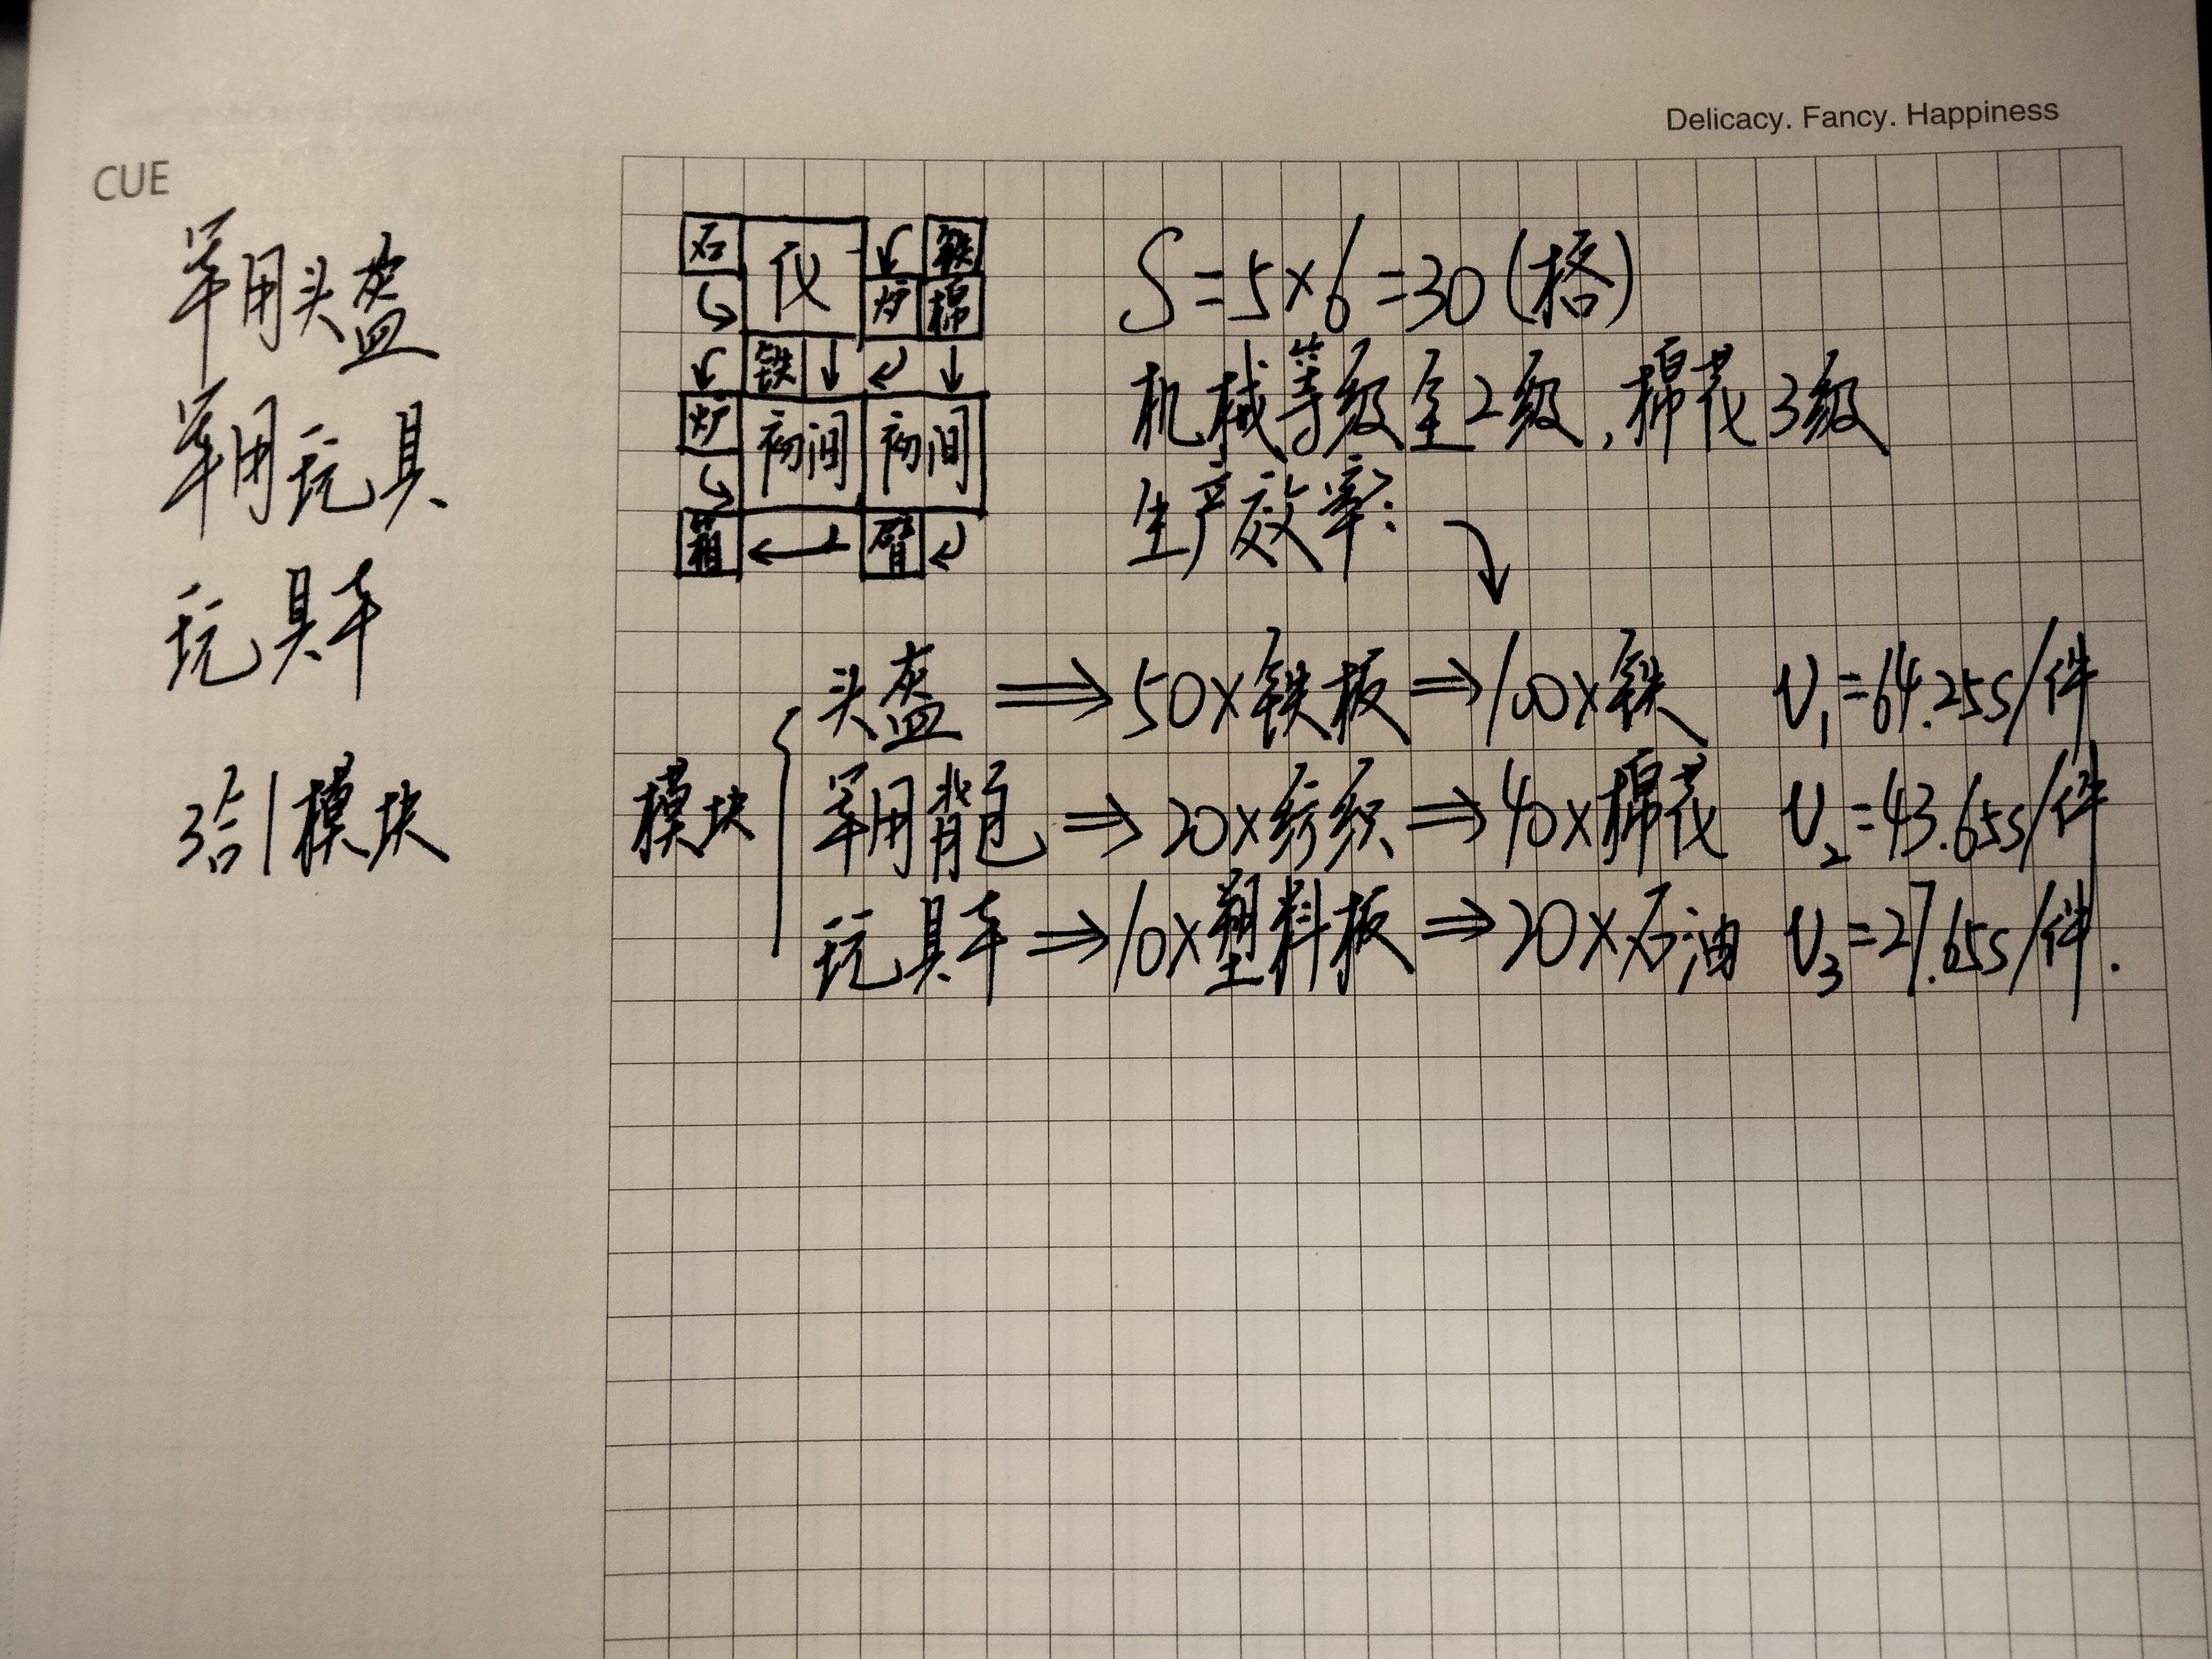 Delicacy. Fancy. Happiness
CUE
军用头盔
军用玩具
玩具车
3合1模块
石 仪 ↙ 铁
↘ 炉 棉
↙ 铁 ↓ ↙ ↓
炉 初间 初间
↘
箱 ← 臂 ↙
S=5×6=30(格)
机械等级全2级,棉花3级
生产效率:
模块
头盔⇒50×铁板⇒100×铁 V₁=64.25s/件
军用背包⇒20×纺织⇒40×棉花 V₂=43.65s/件
玩具车⇒10×塑料板⇒20×石油 V₃=27.65s/件.